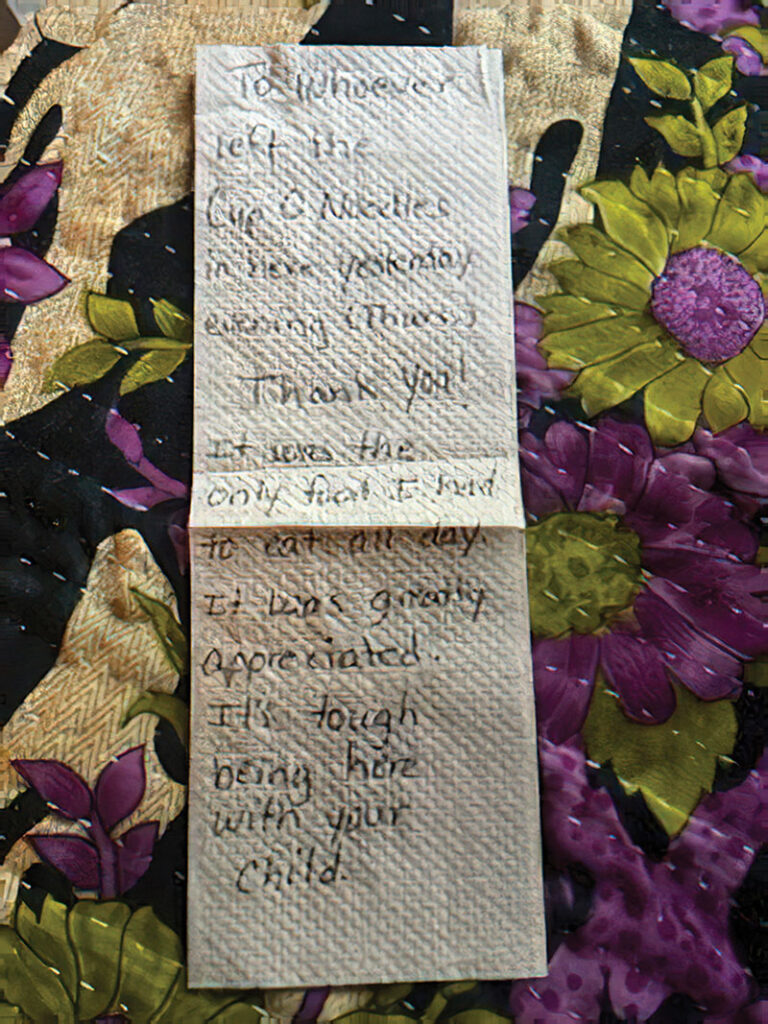 To Whoever
left the
Cup O Noodles
in here yesterday
evening (Thurs)
Thank you!
It was the
only food I had
to eat all day.
It was greatly
appreciated.
It's tough
being here
with your
child.